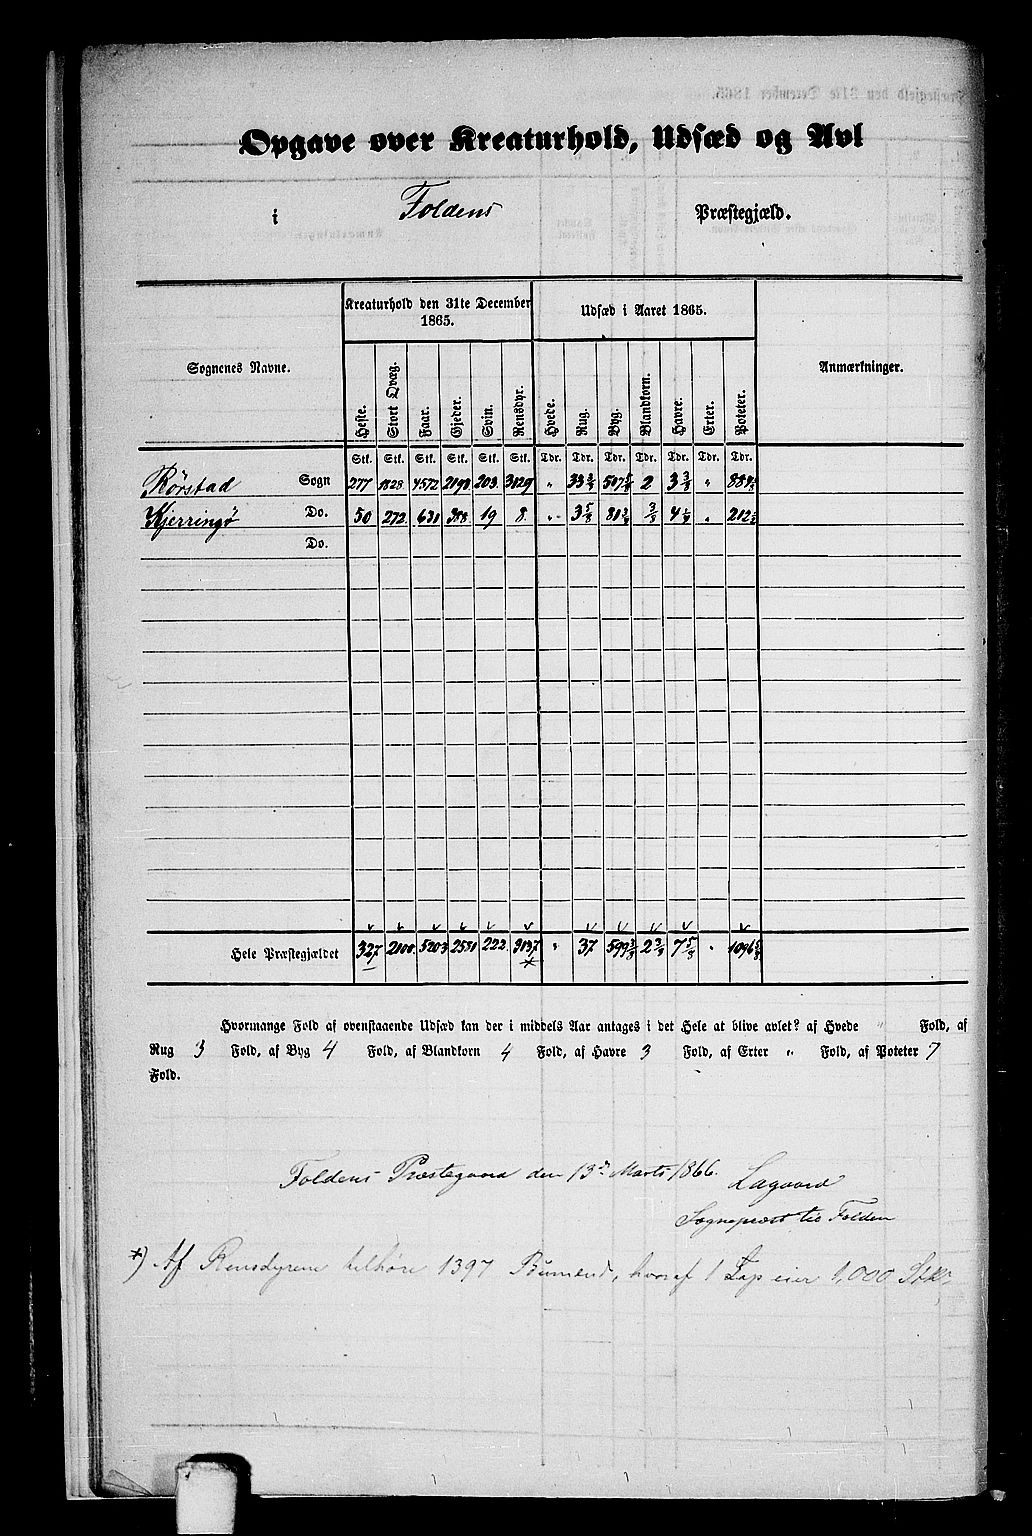 Opgave over Kreaturhold, Udsæd og Avl
i Foldens Præstegjæld.
Sognenes Navne. Kreaturhold den 31te December 1865. Udsæd i Aaret 1865. Anmærkninger.
Heste. Stort Qvæg. Faar. Gjeder. Svin. Rensdyr. Hvede. Rug. Byg. Blandkorn. Havre. Erter. Poteter.
Stk. Stk. Stk. Stk. Stk. Stk. Tdr. Tdr. Tdr. Tdr. Tdr. Tdr. Tdr.
Rørstad Sogn 277 1828 4572 2193 203 3129 " 33 3/8 517 5/8 2 3 3/8 " 884 1/8
Kjerringø Do. 50 272 631 388 19 8 " 3 5/8 81 3/4 3/8 4 1/4 " 212 1/2
Do.
Hele Præstegjældet 327 2100 5203 2581 222 3137 * " 37 599 3/8 2 3/8 7 5/8 " 1096 5/8
Hvormange Fold af ovenstaaende Udsæd kan der i middels Aar antages i det Hele at blive avlet? af Hvede " Fold, af
Rug 3 Fold, af Byg 4 Fold, af Blandkorn 4 Fold, af Havre 3 Fold, af Erter " Fold, af Poteter 7
Fold.
Foldens Præstegaard den 13de Marts 1866.
Lagaard
Sognepræst til Folden
*) Af Rensdyrene tilhøre 1397 Bumænd, hvoraf 1 Lap eier 1,000 Stk.